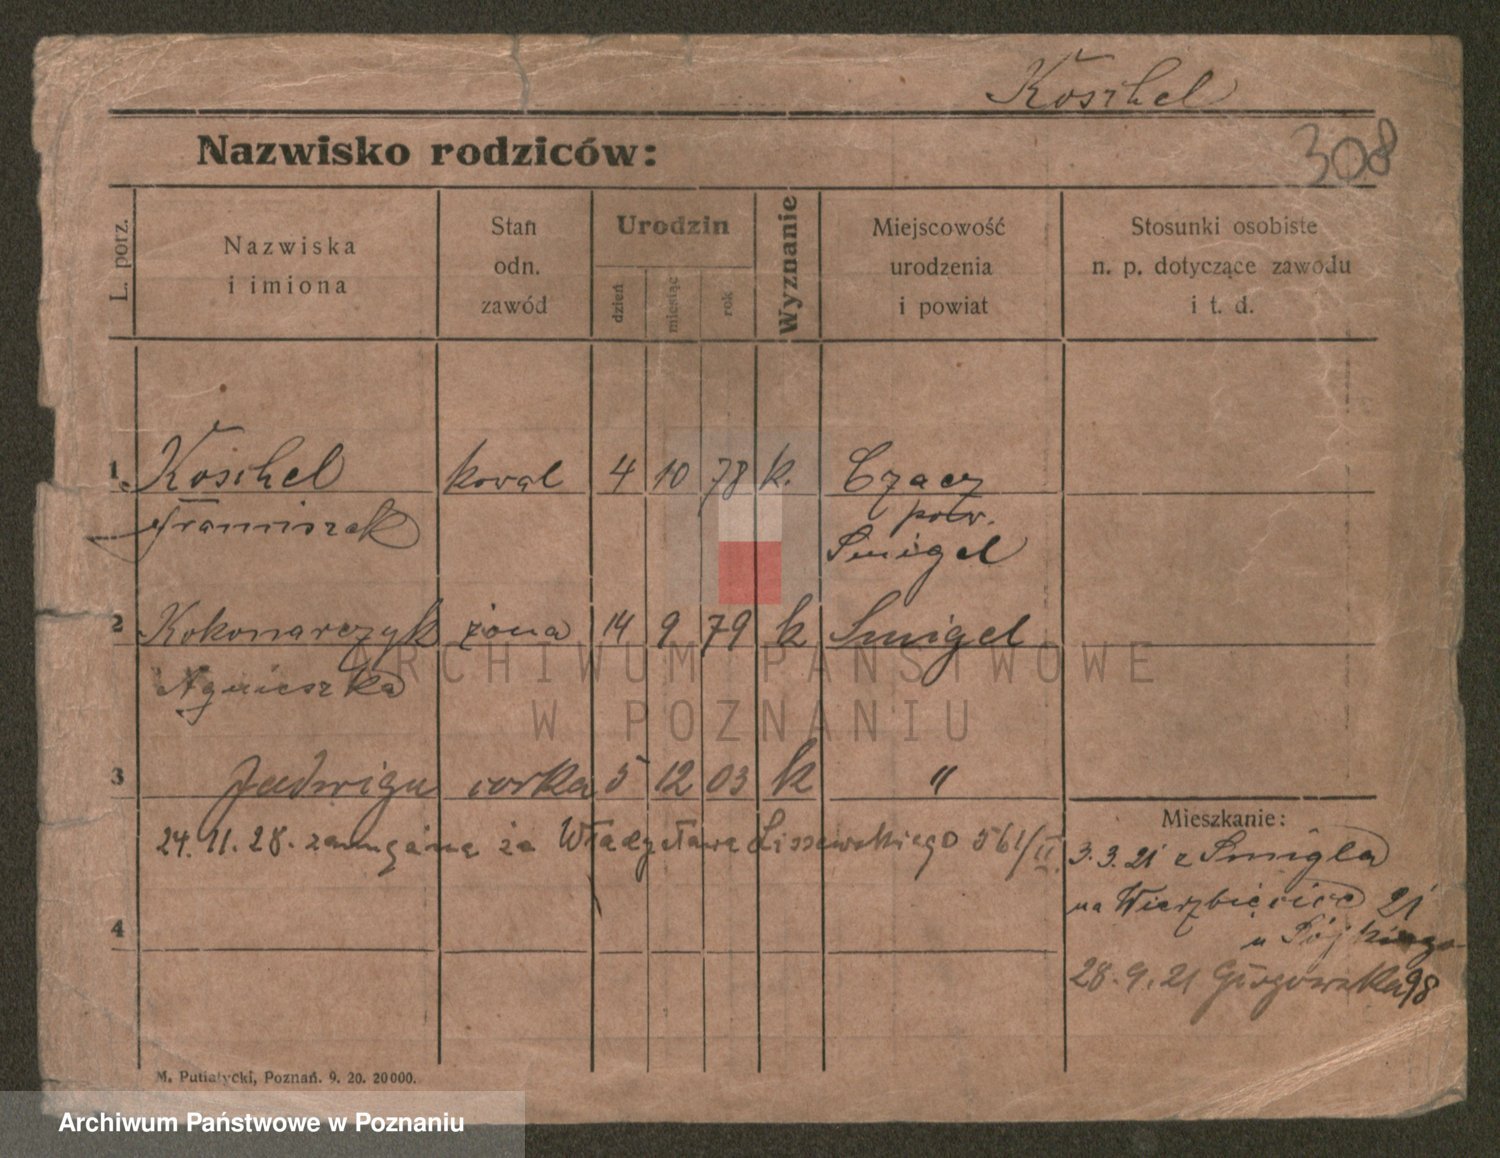 Koschel
308
Nazwisko rodziców:
L. porz.
Nazwiska
i imiona
Stan
odn.
zawód
Urodzin
dzień
miesiąc
rok
Wyznanie
Miejscowość
urodzenia
i powiat
Stosunki osobiste
n. p. dotyczące zawodu
i t. d.
1. Koschel kowal 4 10 78 k. Czacz
Franciszek
pow.
Śmigel
2 Kokonarczyk żona 14 9 79 k Śmigel
Agnieszka
ARCHIWUM PAŃSTWOWE
W POZNANIU
3 Jadwiga córka 5 12 03 k "
24. 11. 28. za Władysława Liszewskiego 561/II.
Mieszkanie:
3. 3. 21 z Śmigla
na Wierzbięcice 21
u
4
28. 9. 21 98
M. Putiatycki, Poznań. 9. 20. 20000.
Archiwum Państwowe w Poznaniu